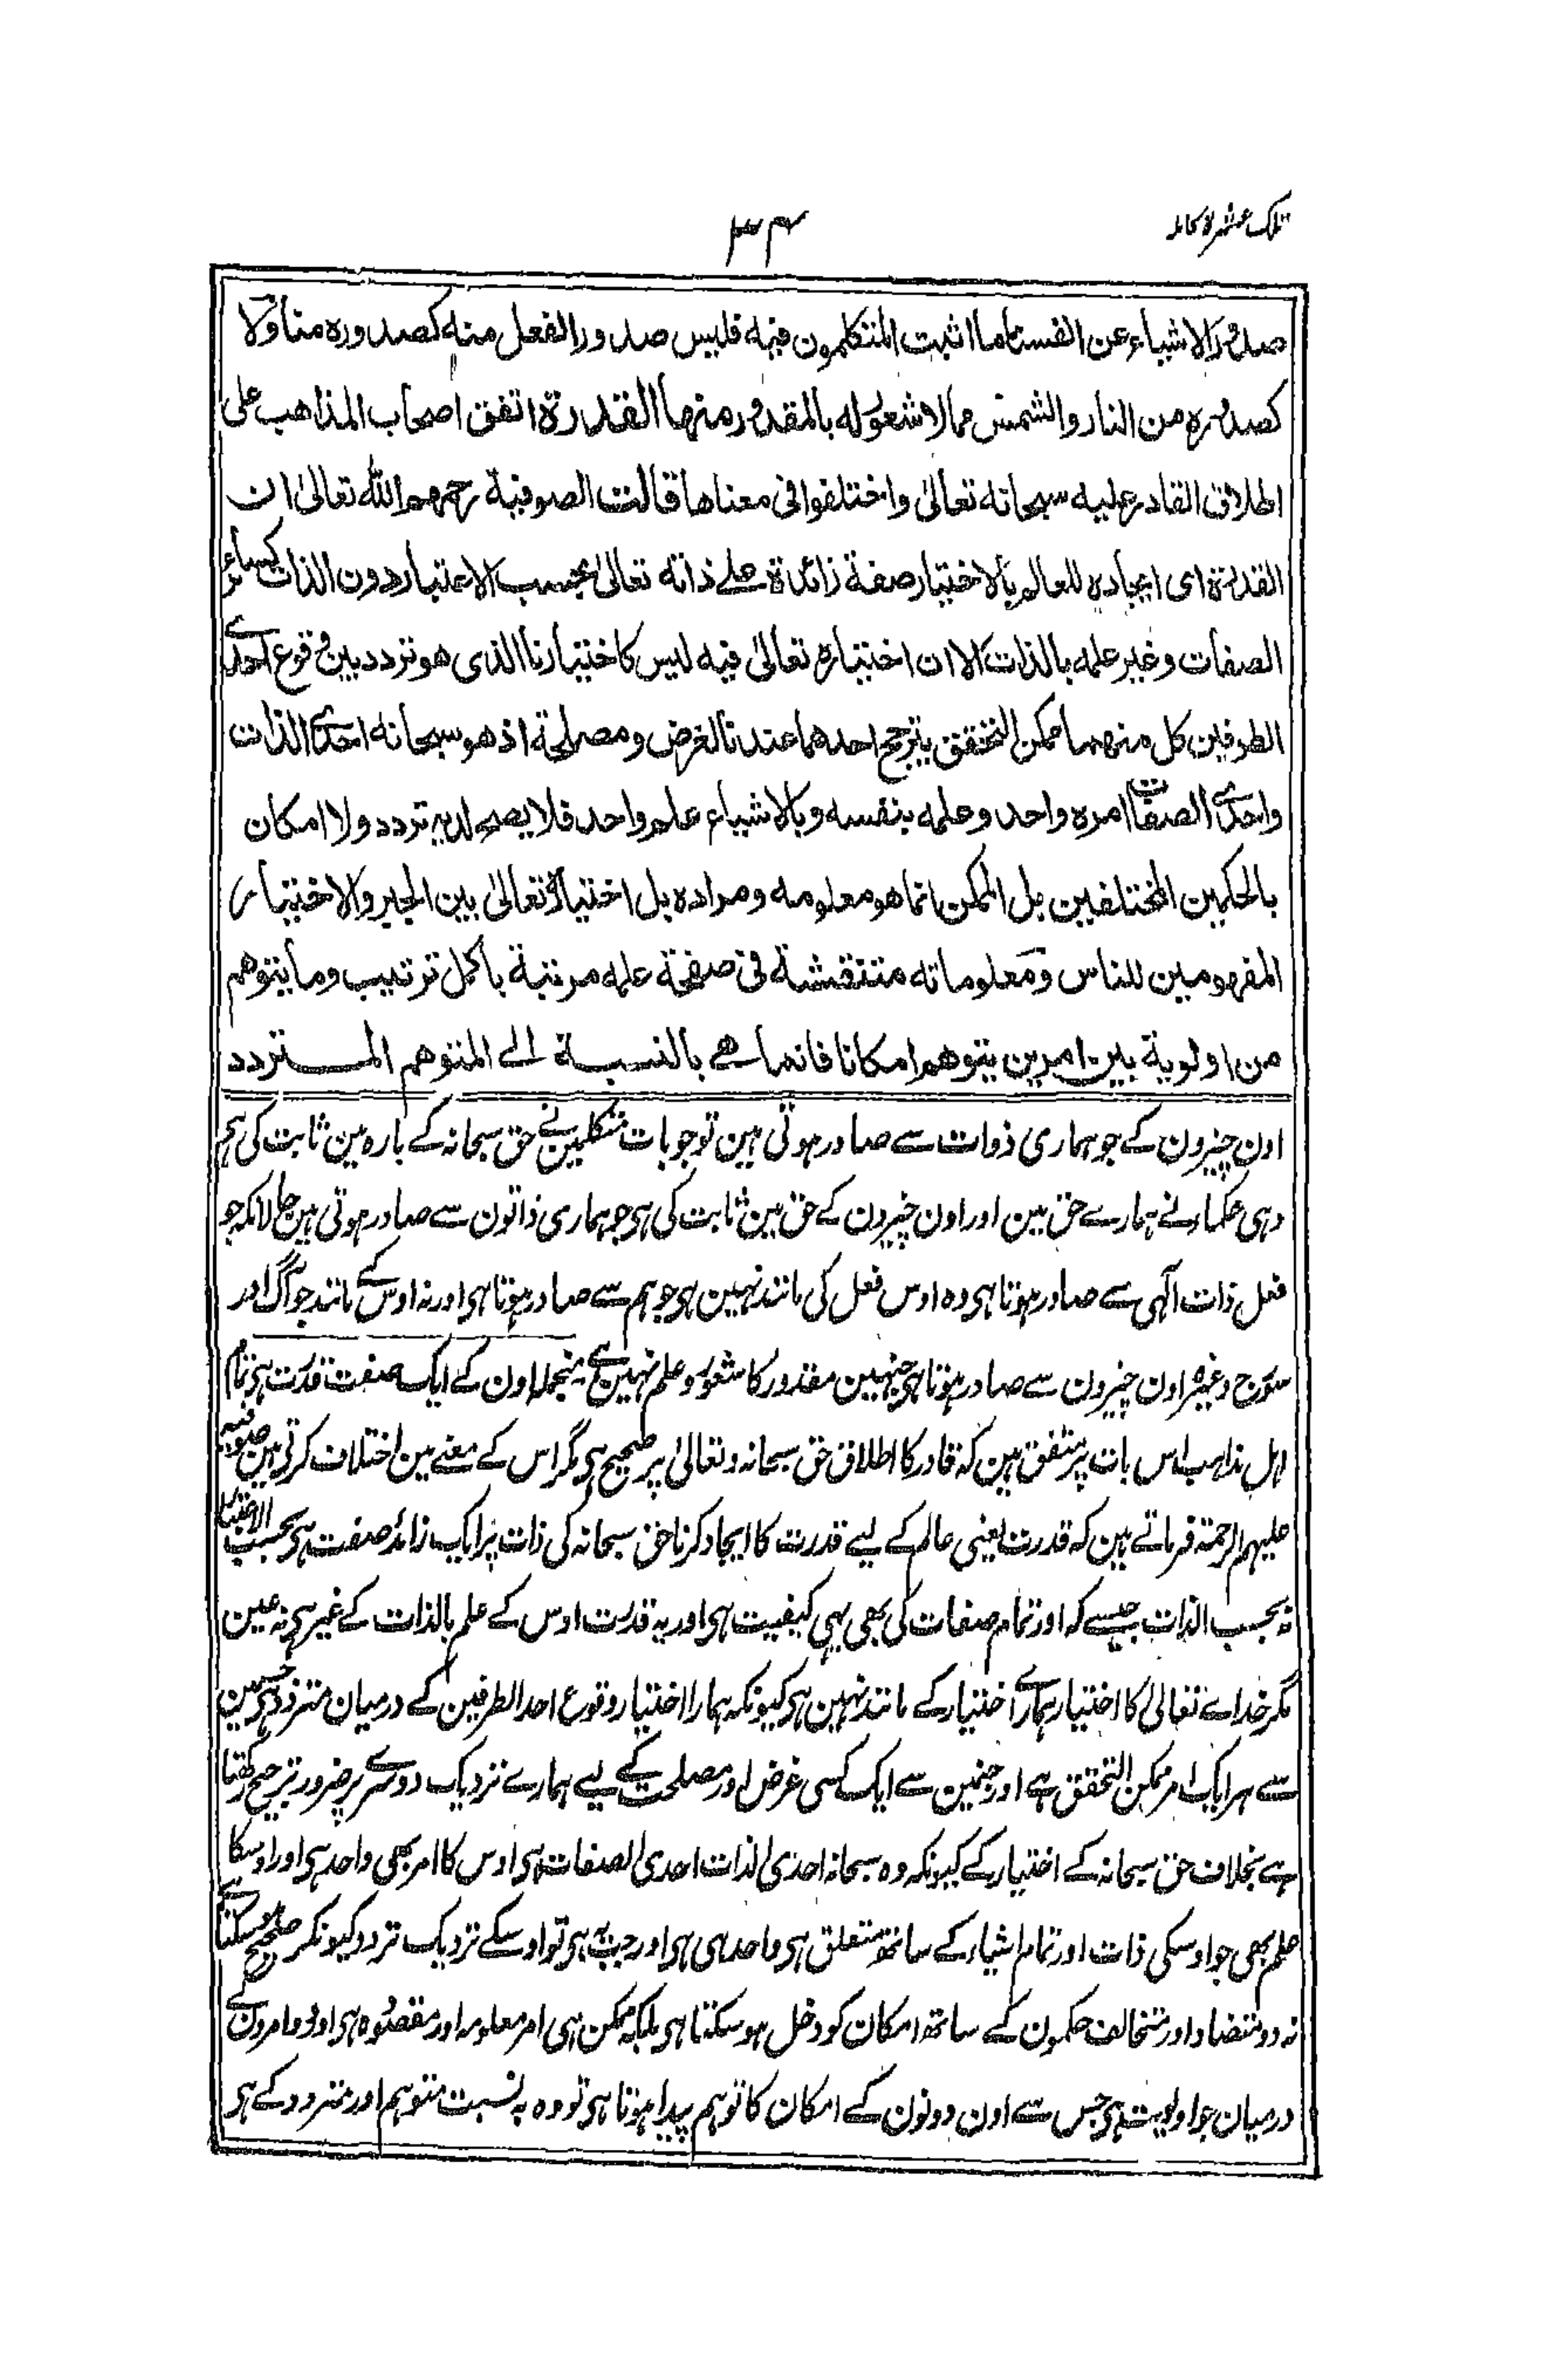 تلک عشرة کاملہ
۳۴
صدور الاشیاء عن انفسنا ما اثبت المتکلمون فیہ فلیس صدور الفعل منہ کصدورہ منا ولا
کصدورہ من النار والشمس مما لا شعور لہ بالمقدور منہا القدرة اتفق اصحاب المذاہب علی
اطلاق القادر علیہ سبحانہ تعالیٰ واختلفوا فی معناھا قالت الصوفیة رحمہم اللہ تعالیٰ ان
القدرة ای ایجادہ للعالم بالاختیار صفة زائدة علے ذاتہ تعالیٰ بحسب الاعتبار دون الذات کسائر
الصفات وغیر علمہ بالذات الا ان اختیارہ تعالیٰ فیہ لیس کاختیارنا الذی ھو تردد بین وقوع احدے
الطرفین کل منہما ممکن التحقق یترجح احدھما عندنا لغرض ومصلحة اذ ھو سبحانہ احدی الذات
واحدی الصفات امرہ واحد وعلمہ بنفسہ وبالاشیاء علم واحد فلا یصح لدیہ تردد ولا امکان
بالحکمین المختلفین بل الممکن انما ھو معلومہ ومرادہ بل اختیارہ تعالیٰ بین الجبر والاختیار
المفہومین للناس ومعلوماتہ منتقشة فی صفحة علمہ مرتبة باکمل ترتیب وما یتوھم
من اولویة بین امرین یتوھم امکانا فانما ھے بالنسبة الے المتوھم المتردد
اون چیزون کے جو ہماری ذوات سے صادر ہوتی ہین تو جو بات متکلمین نے حق سبحانہ کے بارہ مین ثابت کی ہے
وہی حکماء نے ہمارے حق مین اور اون چیزون کے حق مین ثابت کی ہی جو ہماری ذاتون سے صادر ہوتی ہین حالانکہ جو
فعل ذات الٰہی سے صادر ہوتا ہی وہ اوس فعل کی مانند نہین ہی جو ہم سے صادر ہوتا ہی اور نہ اوس کے مانند جو آگ اور
سورج وغیرہ اون چیزون سے صادر ہوتا ہی جنہین مقدور کا شعور و علم نہین ہے منجملہ اون کے ایک صفت قدرت ہی تمام
اہل مذاہب اس بات پر متفق ہین کہ قادر کا اطلاق حق سبحانہ وتعالیٰ پر صحیح ہی مگر اس کے معنے مین اختلاف کرتی ہین صوفیہ
علیہم الرحمة فرماتے ہین کہ قدرت یعنی عالم کے لیے قدرت کا ایجاد کرنا حق سبحانہ کی ذات پر ایک زائد صفت ہی بحسب الاعتبار
نہ بحسب الذات جیسے کہ اور تمام صفات کی بھی یہی کیفیت ہی اور یہ قدرت اوس کے علم بالذات کے غیر ہی نہ عین
مگر خداے تعالیٰ کا اختیار ہمارے اختیار کے مانند نہین ہی کیونکہ ہمارا اختیار وقوع احد الطرفین کے درمیان متردد ہی جسمین
سے ہر ایک امر ممکن التحقق ہے اور جنمین سے ایک کسی غرض اور مصلحت کے لیے ہمارے نزدیک دوسرے پر ضرور ترجیح رکھتا
ہے بخلاف حق سبحانہ کے اختیار کے کیونکہ وہ سبحانہ احدی الذات احدی الصفات ہی اوس کا امر بھی واحد ہی اور اوسکا
علم بھی جو اوسکی ذات اور تمام اشیاء کے ساتھ متعلق ہی واحد ہی ہی اور جب یہ ہی تو اوسکے نزدیک تردد کیونکر صحیح ہو سکتا ہے
نہ دو متضاد اور متخالف حکمون کے ساتھ امکان کو دخل ہو سکتا ہی بلکہ ممکن ہی امر معلومہ اور مقصودہ ہی اور دو امرون کے
درمیان جو اولویت ہی جس سے اون دونون کے امکان کا توہم پیدا ہوتا ہی تو وہ بہ نسبت متوہم اور متردد کے ہی